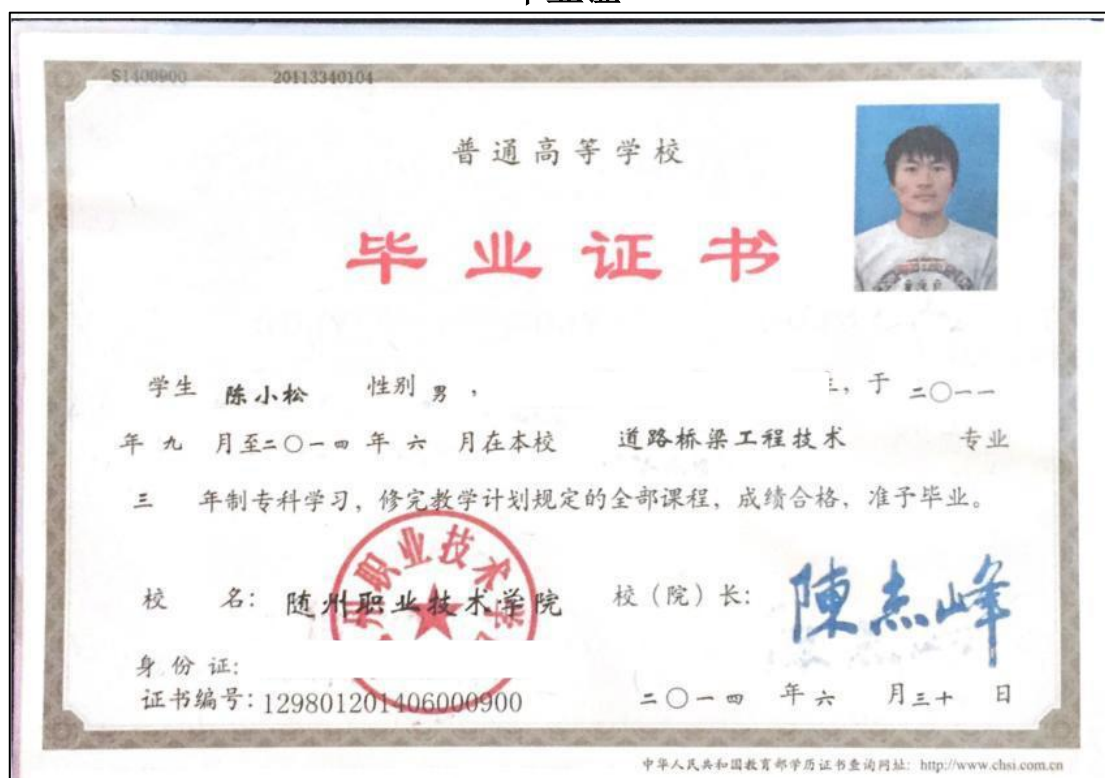 毕业证
S1400900 20113340104
普通高等学校
毕业证书
学生 陈小松 性别 男 , 生, 于 二〇一一
年 九 月至二〇一四 年 六 月在本校 道路桥梁工程技术 专业
三 年制专科学习, 修完教学计划规定的全部课程, 成绩合格, 准予毕业。
校 名: 随州职业技术学院 校（院）长: 陳杰峰
身份证:
证书编号: 129801201406000900 二〇一四 年 六 月 三十 日
中华人民共和国教育部学历证书查询网址: http://www.chsi.com.cn